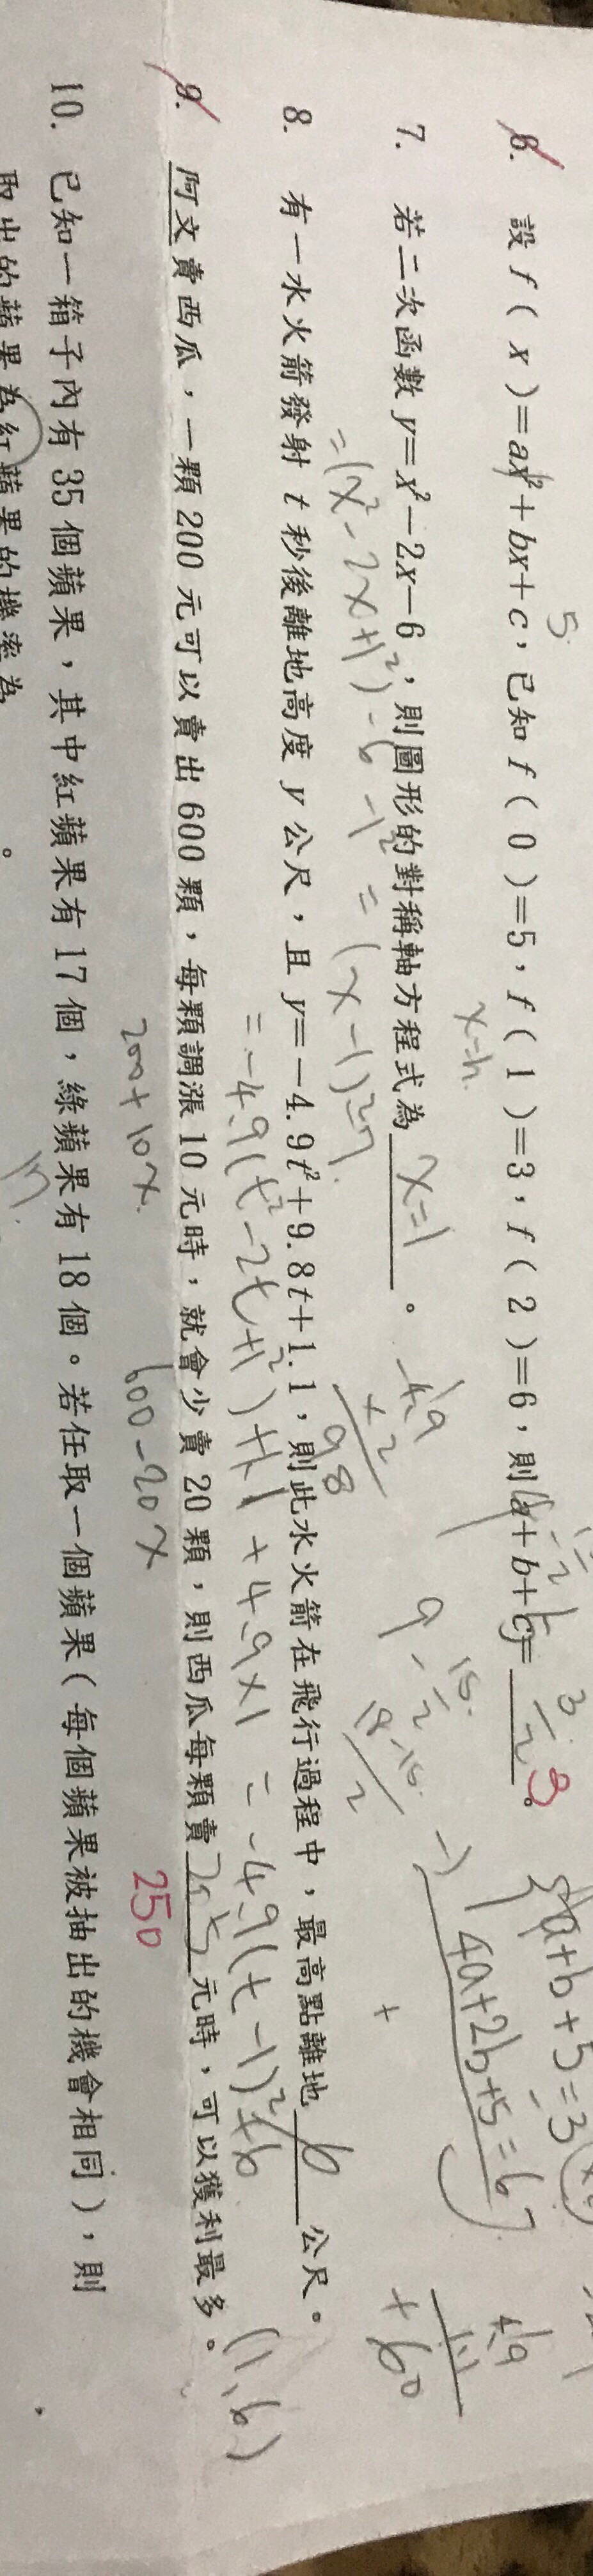 6. 設 f ( x )=ax²+bx+c，已知 f ( 0 )=5，f ( 1 )=3，f ( 2 )=6，則 a+b+c= 3/2 。 3
5
a+b+5=3
4a+2b+5=6
x=h
7. 若二次函數 y=x²－2x－6，則圖形的對稱軸方程式為 x=1 。
=(x²-2x+1²)-6-1²=(x-1)²-7
4.9
×2
98
9-15/2
18-15/2
4.9
1.1
+ 60
8. 有一水火箭發射 t 秒後離地高度 y 公尺，且 y=－4.9t²+9.8t+1.1，則此水火箭在飛行過程中，最高點離地 6 公尺。
=-4.9(t²-2t+1²)+1.1+4.9×1=-4.9(t-1)²+6 (1,6)
9. 阿文賣西瓜，一顆 200 元可以賣出 600 顆，每顆調漲 10 元時，就會少賣 20 顆，則西瓜每顆賣 205 元時，可以獲利最多。
200+10x 600-20x 250
10. 已知一箱子內有 35 個蘋果，其中紅蘋果有 17 個，綠蘋果有 18 個。若任取一個蘋果（每個蘋果被抽出的機會相同），則
取出的蘋果為紅蘋果的機率為 。